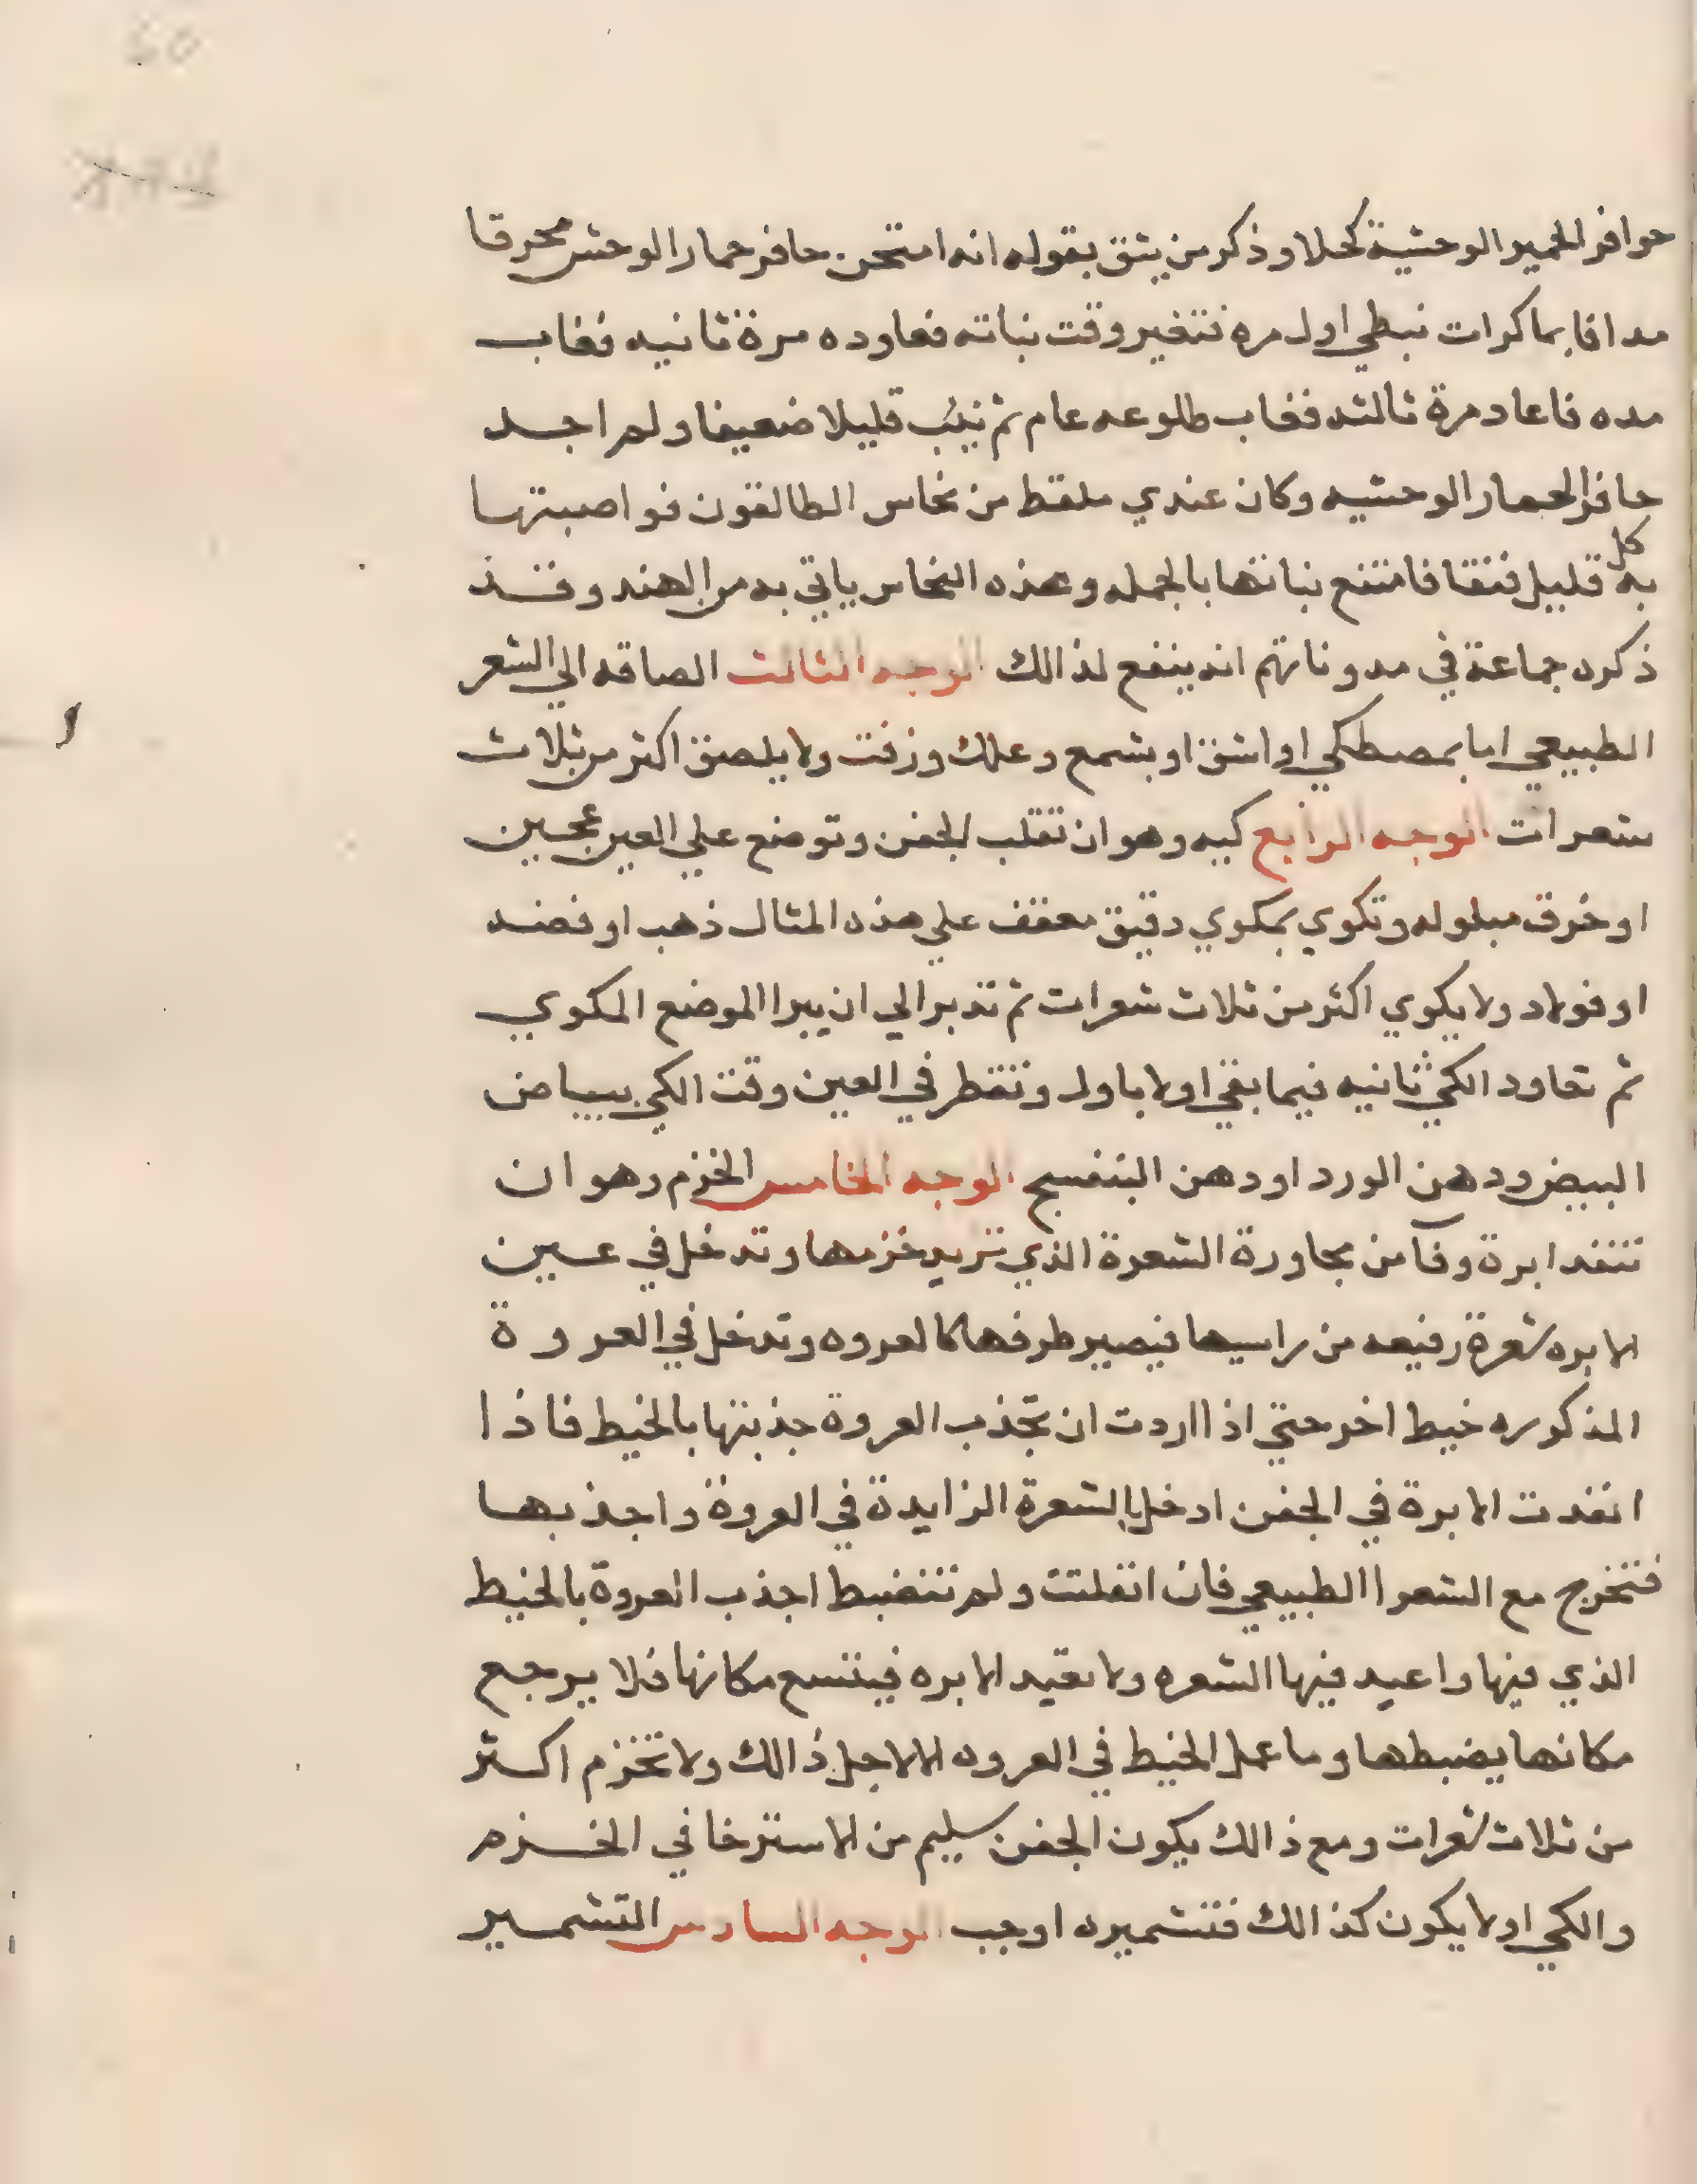 حوافر الحمير الوحشية كحلا وذكر من يثق بقوله انه امتحن حافر حمار الوحش محرقا
مدافا بما كرات نبطي اول مره فتغير وقت نباته فعاوده مرة ثانيه فغاب
مده فاعاد مرة ثالثه فغاب طلوعه عام ثم نبت قليلا ضعيفا ولم اجد
حافر الحمار الوحشيه وكان عندي ملقط من نحاس الطالقون فواصبتها
به كل قليل نتفا فامتنع نباتها بالجمله وهذه النحاس ياتي به من الهند وقد
ذكره جماعة في مدوناتهم انه ينفع لذالك الوجه الثالث الصاقه الي الشعر
الطبيعي اما بمصطكي او اشق او بشمع وعلك وزفت ولا يلصق اكثر من ثلاث
شعرات الوجه الرابع كيه وهو ان تقلب الجفن وتوضع علي العين عجين
او خرق مبلوله وتكوي بمكوي دقيق معقف علي هذه المثال ذهب او فضه
او فولاد ولا يكوي اكثر من ثلاث شعرات ثم تدبر الي ان يبرا الموضع المكوي
ثم تعاود الكي ثانيه فيما بقي اولا باول وتقطر في العين وقت الكي ببياض
البيض ودهن الورد او دهن البنفسج الوجه الخامس الخزم وهو ان
تنفد ابرة وفآ من مجاورة الشعرة الذي تريد خزمها وتدخل في عين
الابره شعرة رفيعه من راسيها فيصير طرفها كالعروه وتدخل في العروة
المذكوره خيط اخر حتي اذا اردت ان تجذب العروة جذبتها بالخيط فاذا
انفدت الابرة في الجفن ادخل بالشعرة الزايدة في العروة واجذبها
فتخرج مع الشعر الطبيعي فان انفلتت ولم تنضبط اجذب العروة بالخيط
الذي فيها واعيد فيها الشعره ولا تعيد الابره فيتسع مكانها فلا يرجع
مكانها يضبطها وما عمل الخيط في العروه الا لاجل ذالك ولا تخزم اكثر
من ثلاث شعرات ومع ذالك يكون الجفن سليم من الاسترخا في الخزم
والكي او لا يكون كذالك فتشميره اوجب الوجه السادس التشمير